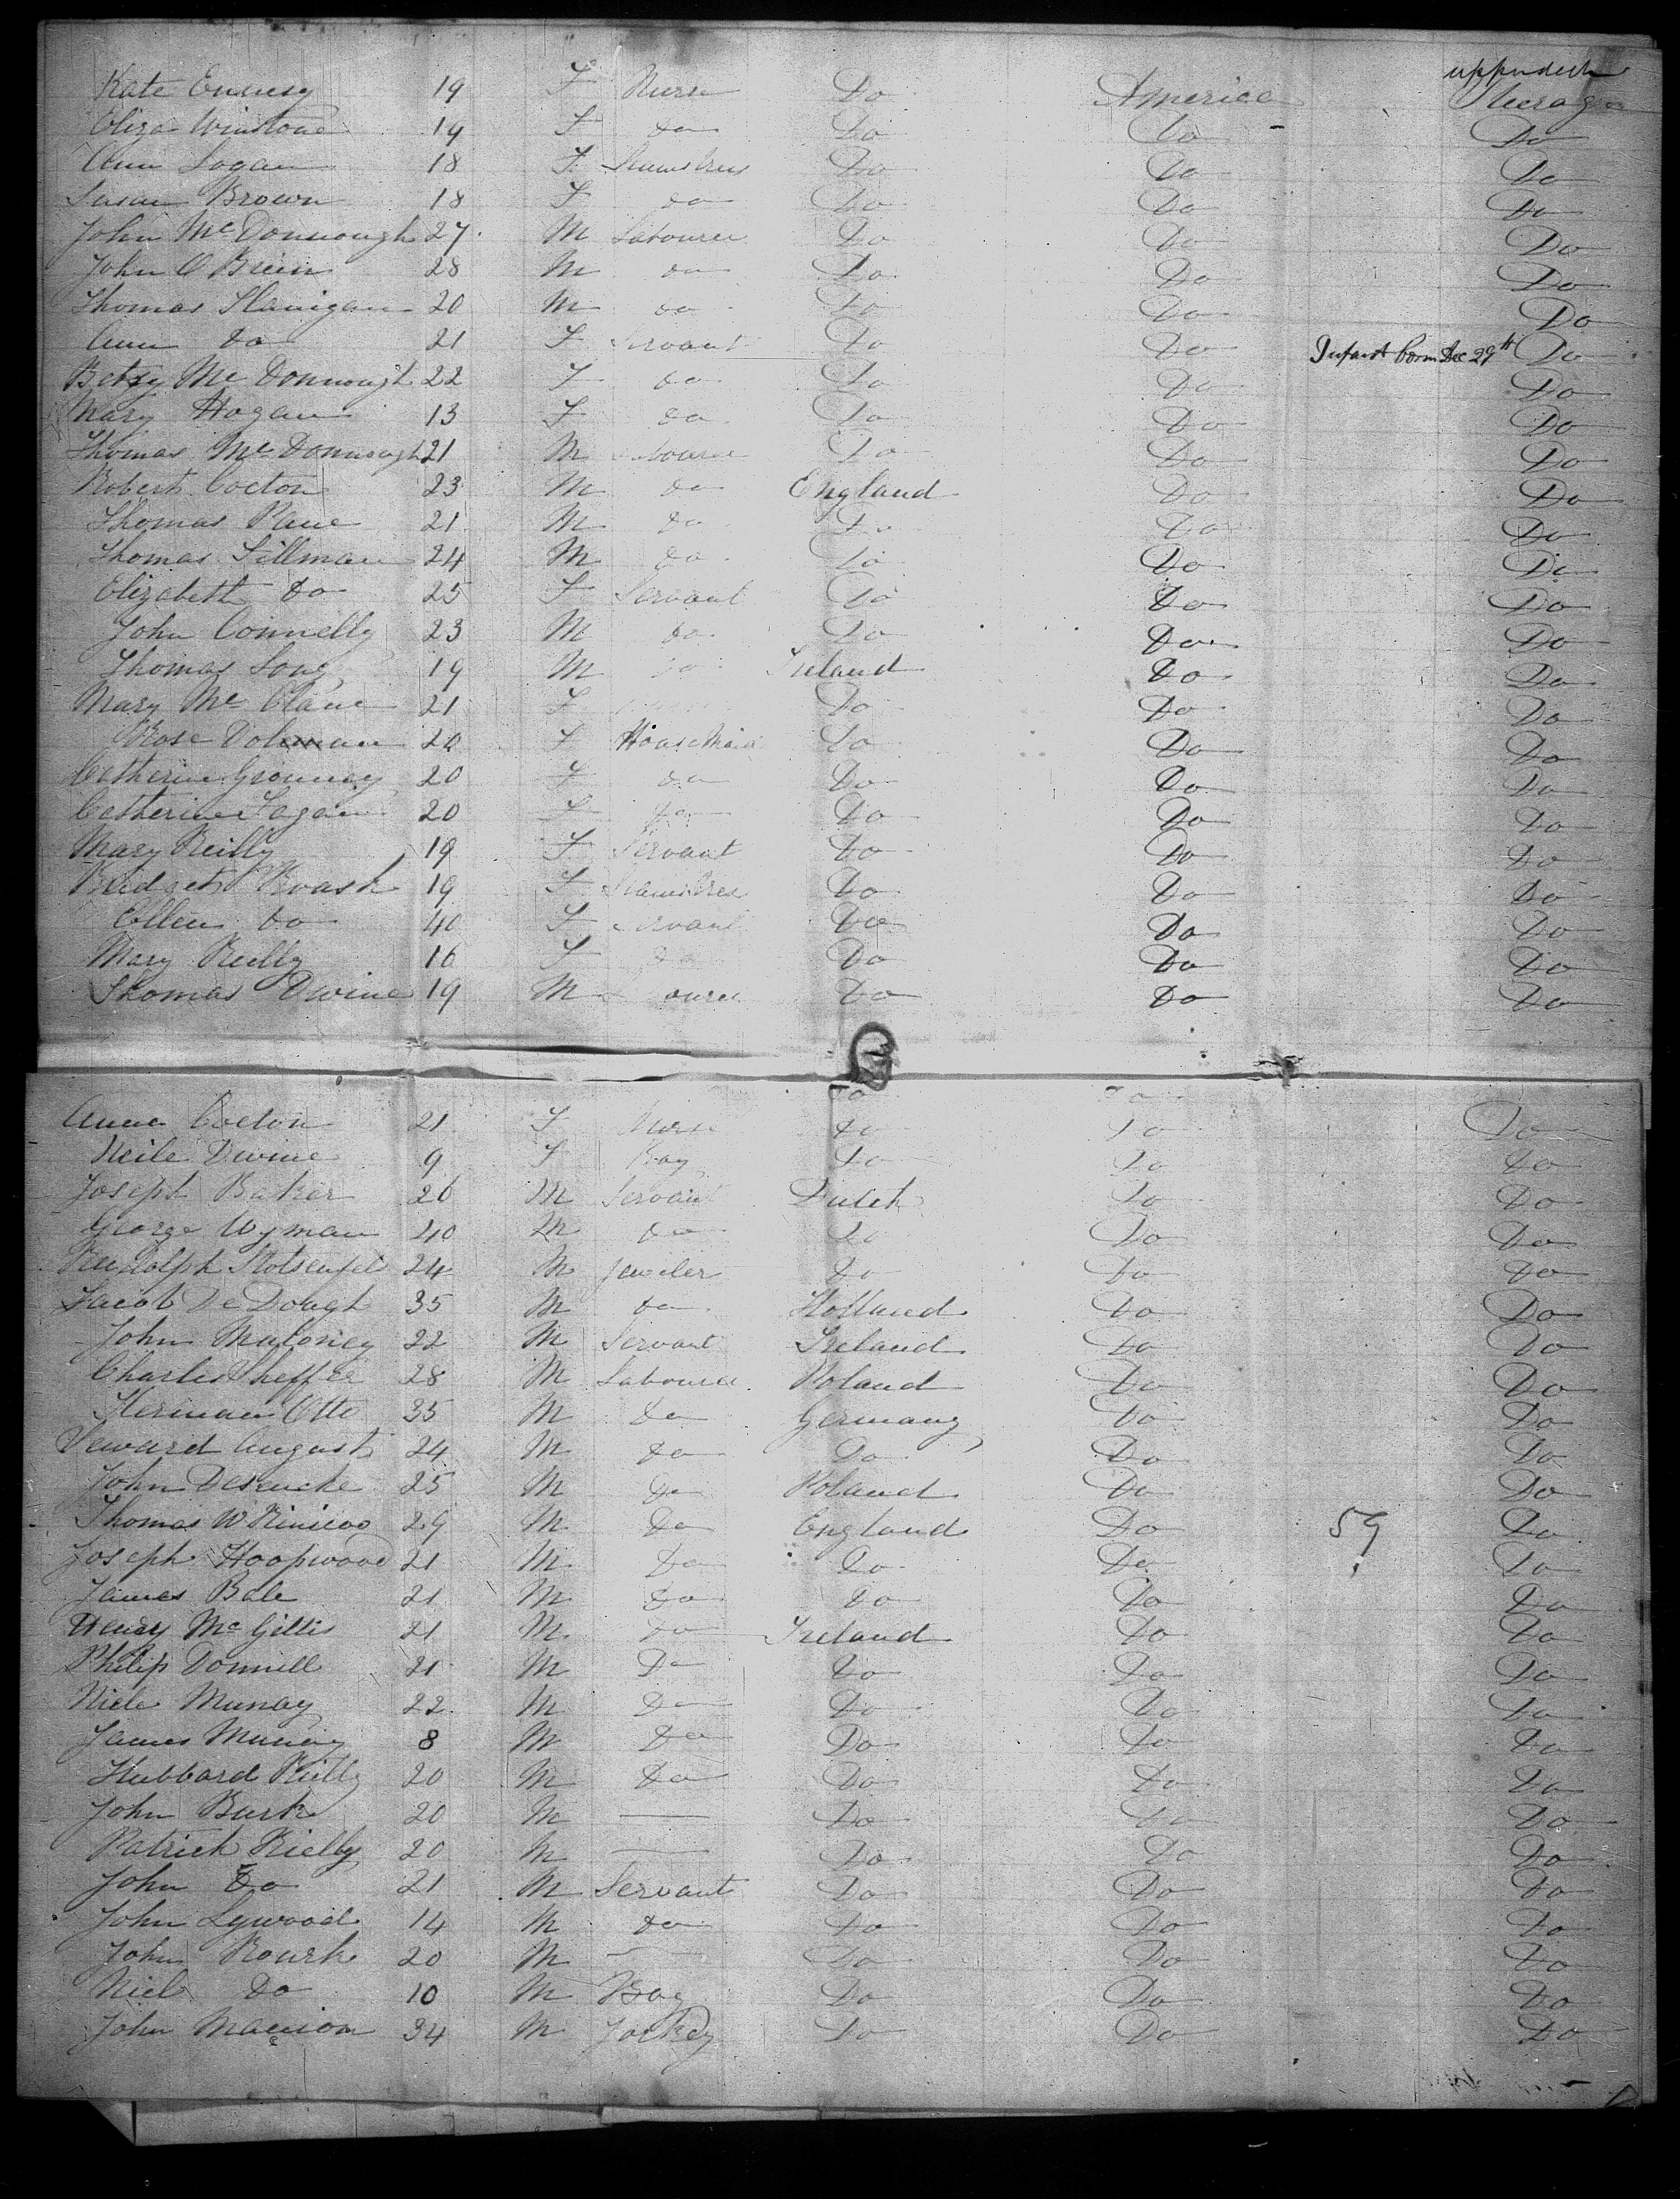 upper deck
Kate Ennesy 19 F Nurse Do America Steerage
Eliza Winstone 19 F do Do Do Do
Ann Logan 18 F Seamstress Do Do Do
Susan Brown 18 F do Do Do Do
John McDonnough 27 M Labourer Do Do Do
John O Brien 28 M do Do Do Do
Thomas Flanigan 20 M do Do Do Do
Ann Do 21 F Servant Do Do Infant born Dec 29th Do
Betsy McDonnough 22 F do Do Do Do
Mary Hogan 13 F do Do Do Do
Thomas McDonnough 21 M Labourer Do Do Do
Robert Cocton 23 M do England Do Do
Thomas Pane 21 M do Do Do Do
Thomas Sillman 24 M do Do Do Do
Elizabeth Do 25 F Servant Do Do Do
John Connelly 23 M do Do Do Do
Thomas Long 19 M do Ireland Do Do
Mary McClane 21 F Do Do Do
Rose Dolan 20 F House Maid Do Do Do
Catherine 20 F do Do Do Do
Catherine Fagan 20 F do Do Do Do
Mary Reilly 19 F Servant Do Do Do
Bridget Roash 19 F Seamstress Do Do Do
Ellen Do 40 F Servant Do Do Do
Mary Reilly 16 F do Do Do Do
Thomas Divine 19 M ourer Do Do Do
Do Do
Anna Cocton 21 F Nurse Do Do Do
Neile Divine 9 F Boy Do Do Do
Joseph Baker 26 M Servant Dutch Do Do
George Wyman 40 M do Do Do Do
Rudolph 24 M Jeweler Do Do Do
Jacob De Dough 35 M do Holland Do Do
John Maloney 22 M Servant Ireland Do Do
Charles Sheffer 28 M Labourer Poland Do Do
Herman Otto 35 M do Germany Do Do
Seward August 24 M do Do Do Do
John 25 M Do Poland Do Do
Thomas W 29 M Do England Do 59 Do
Joseph Hoopwood 21 M Do Do Do Do
James Bale 21 M Do Do Do Do
Henry McGillis 21 M Do Ireland Do Do
Philip Donnell 21 M Do Do Do Do
Niele Munay 22 M Do Do Do Do
James Munay 8 M Do Do Do Do
Hubbard Reilly 20 M Do Do Do Do
John Burk 20 M — Do Do Do
Patrick Rielly 20 M — Do Do Do
John Do 21 M Servant Do Do Do
John Lywood 14 M do Do Do Do
John Rourk 20 M — Do Do Do
Niel Do 10 M Boy Do Do Do
John Mannion 34 M Jockey Do Do Do